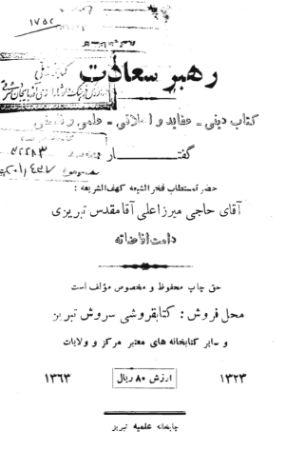 ۱۷۵۲
رهبر سعادت
کتاب دینی - عقاید و اخلاقی - علمی و
گفتار
۳۲۴۸۳
حضرت مستطاب فخر الشیعه کهف الشریعه :
آقای حاجی میرزا علی آقا مقدس تبریزی
دامت افاضاته
حق چاپ محفوظ و مخصوص مؤلف است
محل فروش : کتابفروشی سروش تبریز
و سایر کتابخانه های معتبر مرکز و ولایات
۱۳۲۳ ارزش ۸۰ ریال ۱۳۶۳
چاپخانه علمیه تبریز